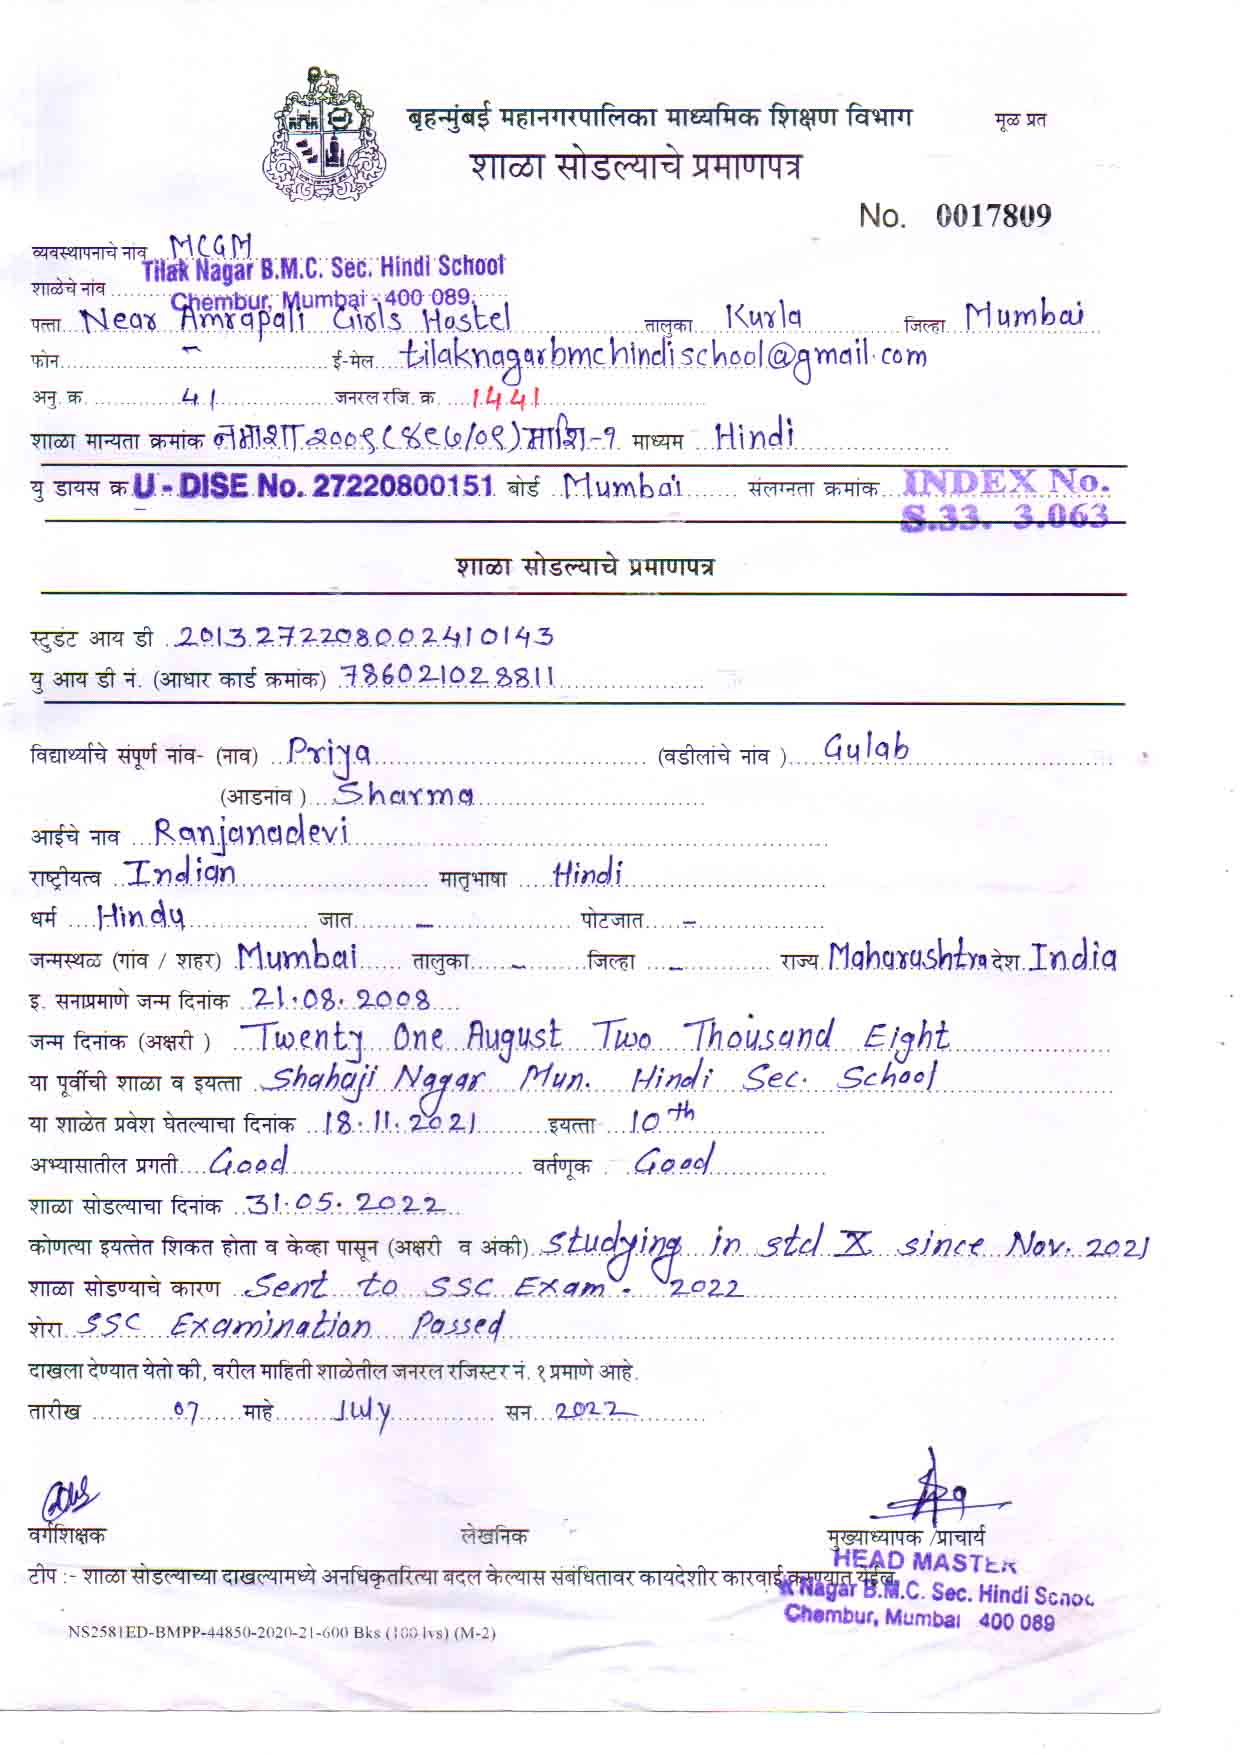 बृहन्मुंबई महानगरपालिका माध्यमिक शिक्षण विभाग मूळ प्रत
शाळा सोडल्याचे प्रमाणपत्र
No. 0017809
व्यवस्थापनाचे नांव MCGM
शाळेचे नांव Tilak Nagar B.M.C. Sec. Hindi School
Chembur, Mumbai - 400 089.
पत्ता Near Amrapali Girls Hostel तालुका Kurla जिल्हा Mumbai
फोन - ई-मेल tilaknagarbmchindischool@gmail.com
अनु. क्र. 41 जनरल रजि. क्र. 1441
शाळा मान्यता क्रमांक नमाशा २००९(४९७/०९)माशि-१ माध्यम Hindi
यु डायस क्र U - DISE No. 27220800151 बोर्ड Mumbai संलग्नता क्रमांक INDEX No.
S.33. 3.063
शाळा सोडल्याचे प्रमाणपत्र
स्टुडंट आय डी 2013272208002410143
यु आय डी नं. (आधार कार्ड क्रमांक) 786021028811
विद्यार्थ्याचे संपूर्ण नांव- (नाव) Priya (वडीलांचे नांव ) Gulab
(आडनांव ) Sharma
आईचे नाव Ranjanadevi
राष्ट्रीयत्व Indian मातृभाषा Hindi
धर्म Hindu जात - पोटजात -
जन्मस्थळ (गांव / शहर) Mumbai तालुका - जिल्हा - राज्य Maharashtra देश India
इ. सनाप्रमाणे जन्म दिनांक 21.08.2008
जन्म दिनांक (अक्षरी ) Twenty One August Two Thousand Eight
या पूर्वीची शाळा व इयत्ता Shahaji Nagar Mun. Hindi Sec. School
या शाळेत प्रवेश घेतल्याचा दिनांक 18.11.2021 इयत्ता 10th
अभ्यासातील प्रगती Good वर्तणूक Good
शाळा सोडल्याचा दिनांक 31.05.2022
कोणत्या इयत्तेत शिकत होता व केव्हा पासून (अक्षरी व अंकी) studying in std X since Nov. 2021
शाळा सोडण्याचे कारण Sent to SSC Exam - 2022
शेरा SSC Examination Passed
दाखला देण्यात येतो की, वरील माहिती शाळेतील जनरल रजिस्टर नं. १ प्रमाणे आहे.
तारीख 07 माहे July सन 2022
वर्गशिक्षक लेखनिक मुख्याध्यापक /प्राचार्य
HEAD MASTER
टीप :- शाळा सोडल्याच्या दाखल्यामध्ये अनधिकृतरित्या बदल केल्यास संबंधितावर कायदेशीर कारवाई करण्यात येईल.
k Nagar B.M.C. Sec. Hindi School
Chembur, Mumbai 400 089
NS2581ED-BMPP-44850-2020-21-600 Bks (100 lvs) (M-2)